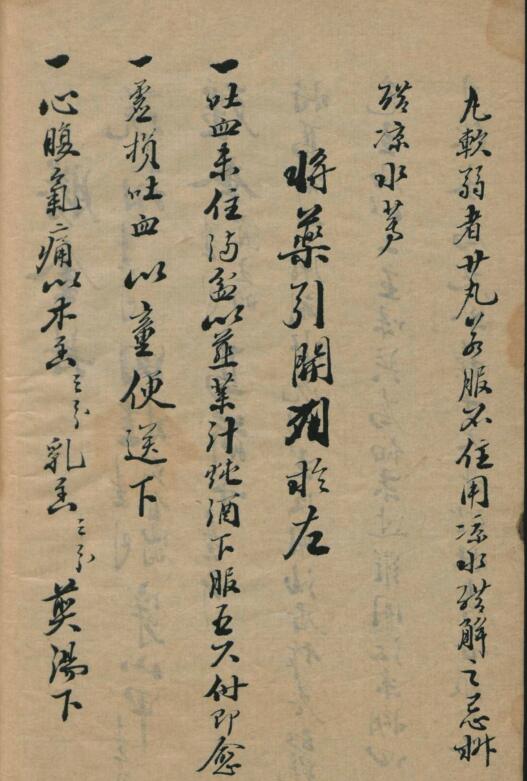 丸軟弱者廿丸若服不住用凉水醋解之忌
醋凉水等
將藥引開列於左
一吐血未住滿盆以韮菜汁炖酒下服五六付即愈
一虛損吐血以童便送下
一心腹氣痛以木香三分乳香三分煎湯下